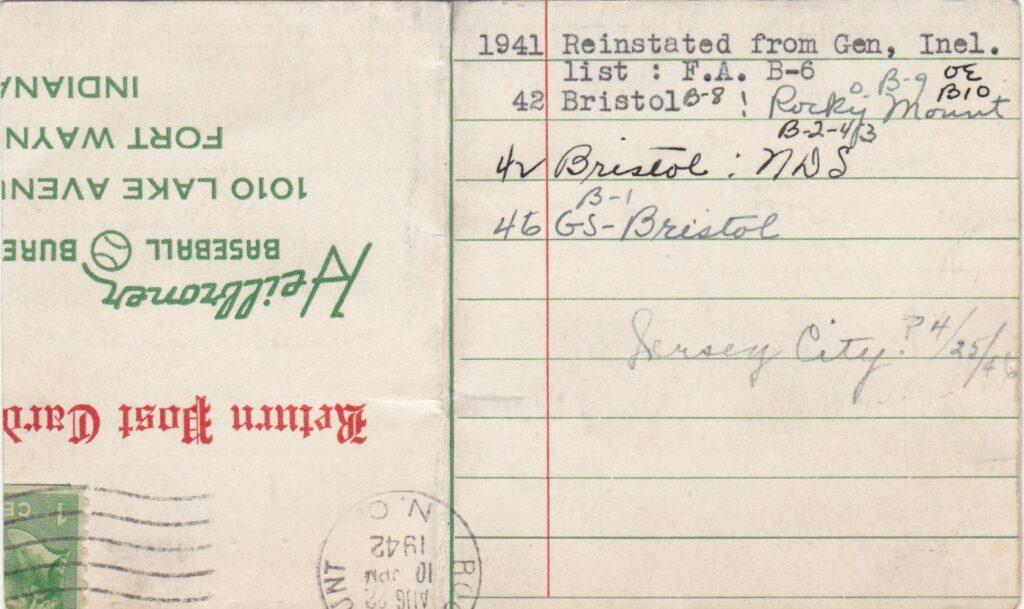 1941 Reinstated from Gen, Inel.
list : F.A. B-6
O B-9 OE
42 Bristol B-8 ! Rocky Mount B10
B-2-4/3
42 Bristol : NDS
B-1
46 GS-Bristol
Jersey City. ? 4/25/46
1 CE
ROC
UNT
AUG 22
10 PM
1942
N.C.
Return Post Card
Heilbroner
BASEBALL BURE
1010 LAKE AVENU
FORT WAYN
INDIANA